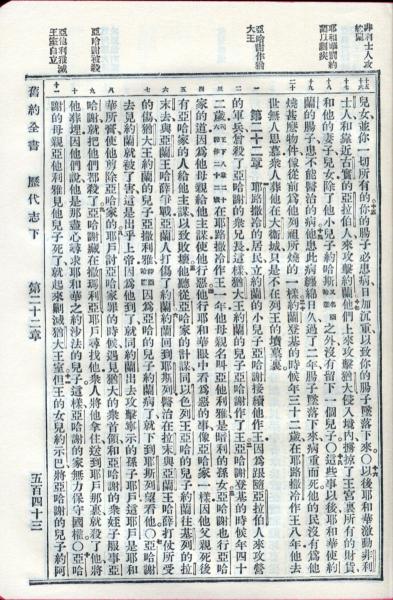 非利士人攻
約蘭
耶和華罰約
蘭以劇疾
亞哈謝作猶
大王
亞哈謝被殺
亞他利雅滅
王室自立
兒女並你一切所有的你的腸子必患病日加沉重以致你的腸子墜落下來〇以後耶和華激動非利
士人和靠近古實的亞拉伯人來攻擊約蘭他們上來攻擊猶大侵入境內擄掠了王宮裏所有的財貨
和他的妻子兒女除了他小兒子約哈斯之外沒有留下一個兒子〇這些事以後耶和華使約
蘭的腸子患不能醫治的病他患此病纏綿日久過了二年腸子墜落下來病重而死他的民沒有爲他
燒甚麼物件像從前爲他列祖所燒的一樣約蘭登基的時候年三十二歲在耶路撒冷作王八年他去
世無人思慕衆人葬他在大衛城只是不在列王的墳墓裏
第二十二章 耶路撒冷的居民立約蘭的小兒子亞哈謝接續他作王因爲跟隨亞拉伯人來攻營
的軍兵曾殺了亞哈謝的衆兄長這樣猶大王約蘭的兒子亞哈謝作了王亞哈謝登基的時候年四十
二歲在耶路撒冷作王一年他母親名叫亞他利雅是暗利的孫女亞哈謝也行亞哈
家的道因爲他母親給他主謀使他行惡他行耶和華眼中看爲惡的事像亞哈家一樣因他父親死後
有亞哈家的人給他主謀以致敗壞他聽從亞哈家的計謀同以色列王亞哈的兒子約蘭往基列的拉
末去與亞蘭王哈薛爭戰亞蘭人打傷了約蘭約蘭回到耶斯列醫治在拉末與亞蘭王哈薛打仗所受
的傷猶大王約蘭的兒子亞撒利雅因爲亞哈的兒子約蘭病了就下到耶斯列看望他〇亞哈謝
去見約蘭就被了害這是出乎上帝因爲他到了就同約蘭出去攻擊寧示的孫子耶戶這耶戶是耶和
華所膏使他剪除亞哈家的耶戶討亞哈家罪的時候遇見猶大的衆首領和亞哈謝的衆姪子服事亞
哈謝就把他們都殺了亞哈謝藏在撒瑪利亞耶戶尋找他衆人將他拿住送到耶戶那裏就殺了他將
他葬埋因他們說他是那盡心尋求耶和華之約沙法的兒子這樣亞哈謝的家無力保守國權〇亞哈
謝的母親亞他利雅見他兒子死了就起來剿滅猶大王室但王的女兒約示巴將亞哈謝的兒子約阿
舊約全書 歷代志下 第二十二章 五百四十三